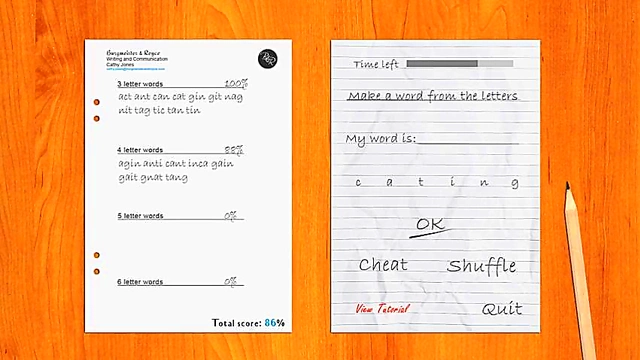 Burgmeister & Royce
Writing and Communication
Cathy Jones
3 letter words 100%
act ant can cat gin git nag
nit tag tic tan tin
4 letter words 88%
agin anti cant inca gain
gait gnat tang
5 letter words 0%
6 letter words 0%
Total score: 86%
Time left
Make a word from the letters
My word is:
c a t i n g
OK
Cheat Shuffle
View Tutorial Quit